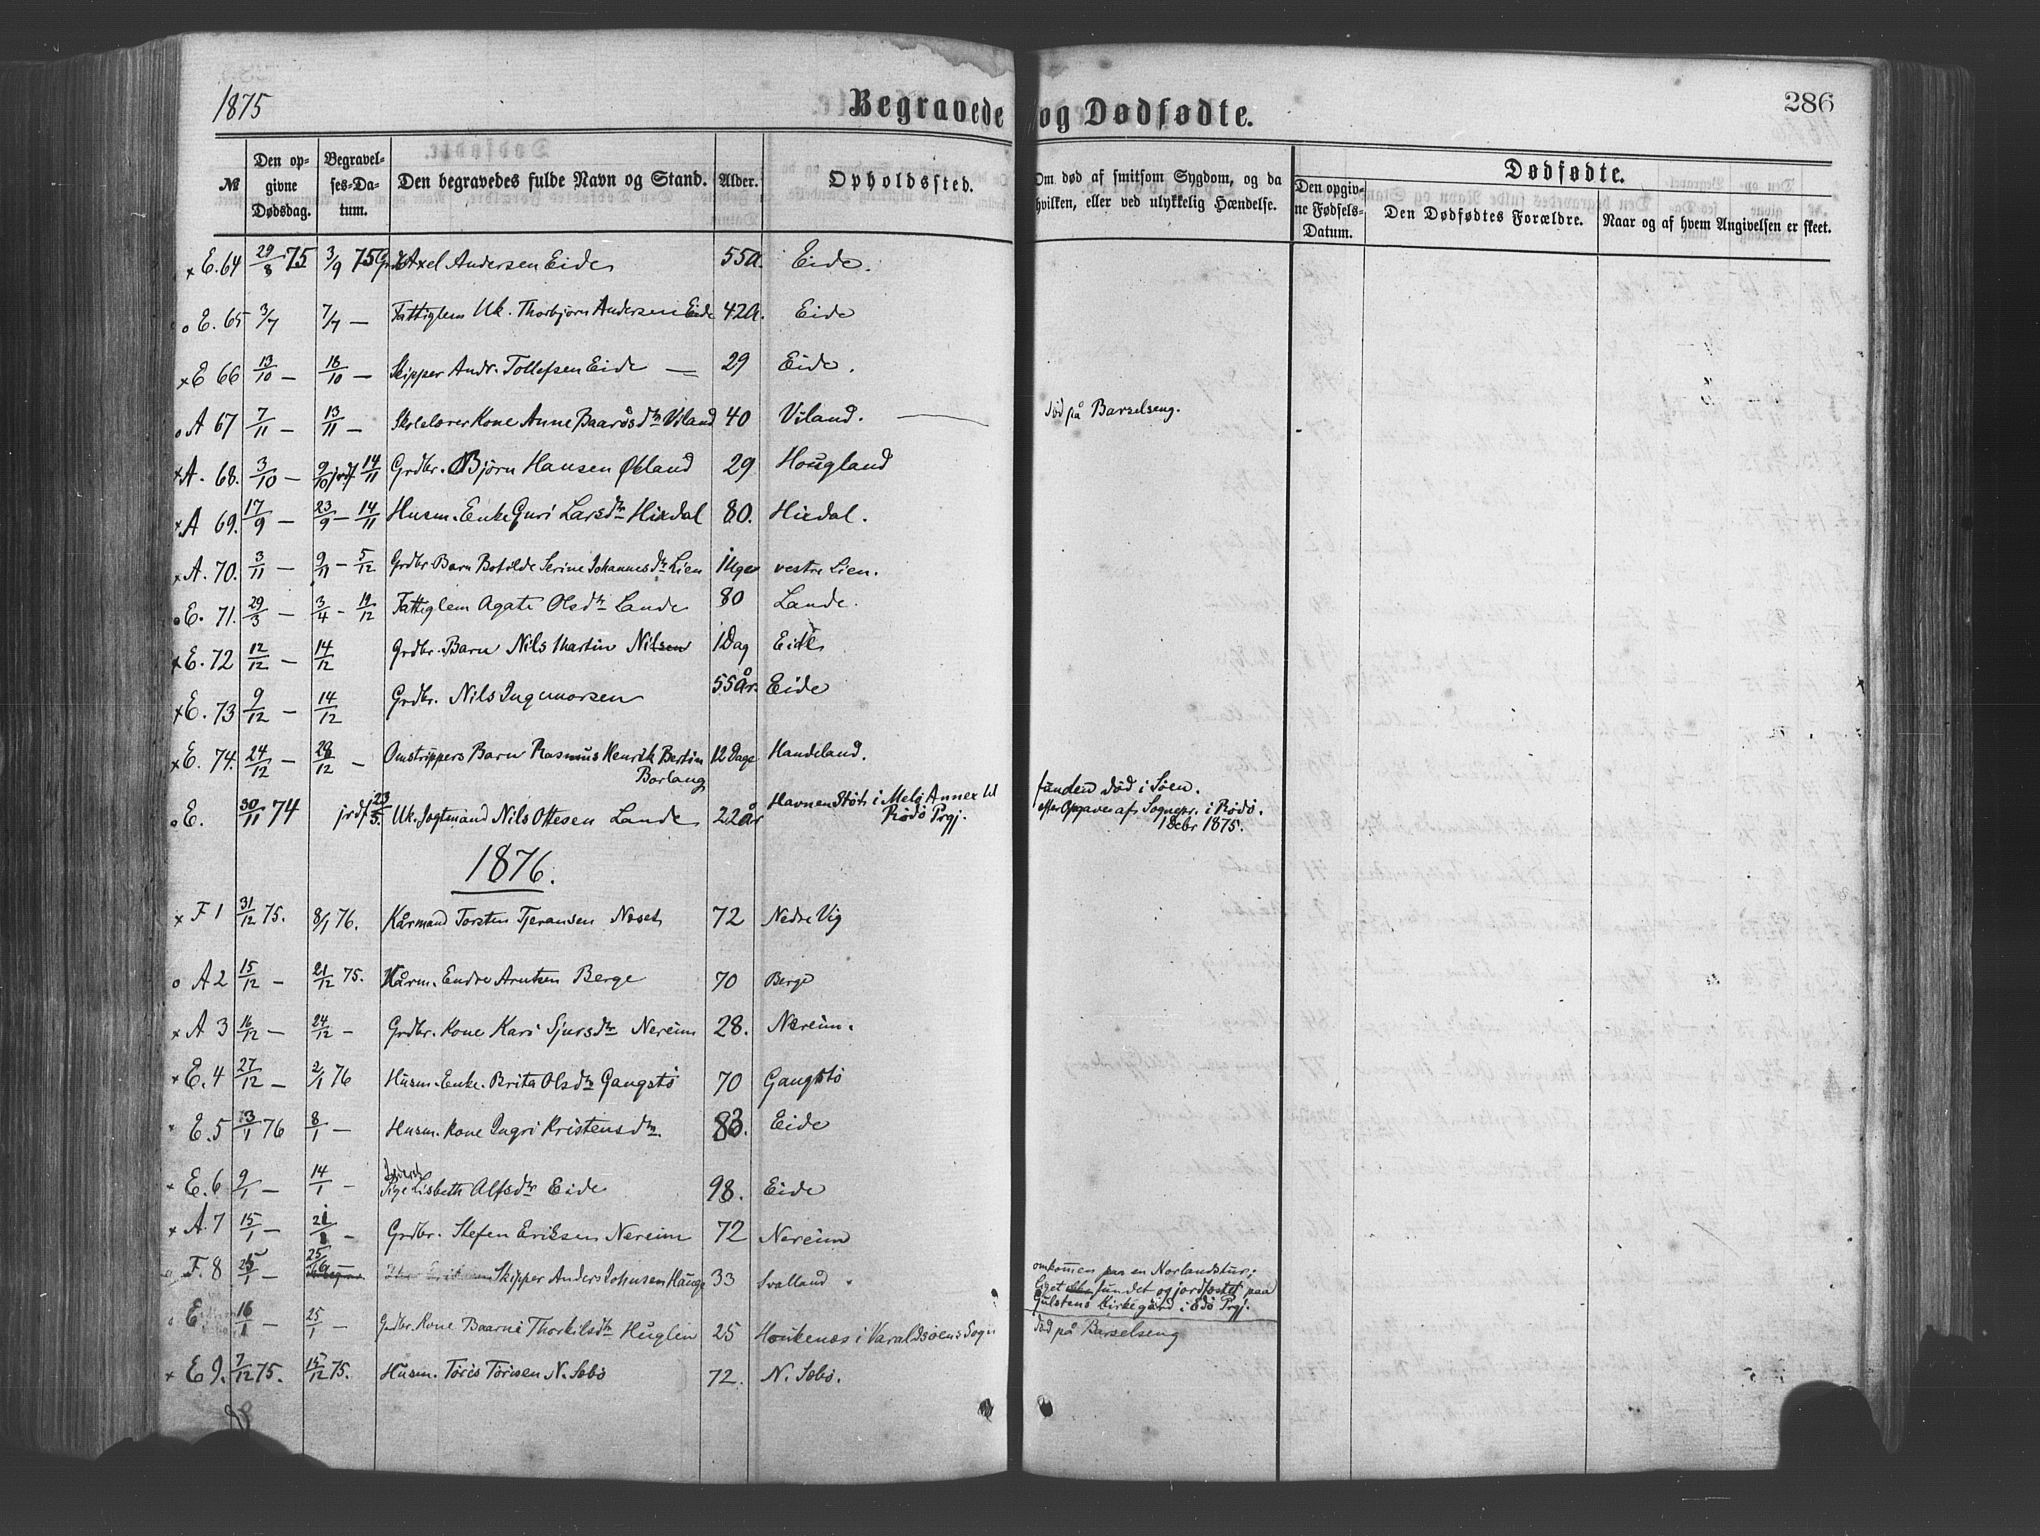 1875
Begravede og Dødfødte.
286
№
Den opgivne Dødsdag.
Begravelses-Datum.
Den begravedes fulde Navn og Stand.
Alder.
Opholdssted.
Om død af smitsom Sygdom, og da hvilken, eller ved ulykkelig Hændelse.
Dødfødte.
Den opgivne Fødsels-Datum.
Den Dødfødtes Forældre.
Naar og af hvem Angivelsen er skeet.
x E. 64 29/8 75 3/9 75 Axel Andersen Eide 55 A. Eide.
o E. 65 3/7 7/7 — Fattiglem Uk. Thorbjørn Andersen Eide 42 A. Eide
x E 66 13/10 — 18/10 — Skipper Andr. Tollefsen Eide — 29 Eide.
o A 67 7/11 — 13/11 — Skolelærer Kone Anne Baarðsdtr Viland 40 Viland. — død på Barselseng.
x A. 68. 3/10 — 9/10 jrdf 14/11 Grdbr. Bjørn Hansen Økland 29 Hougland
x A 69. 17/9 — 23/9 — 14/11 Husm. Enke Guri Larsdtr Hisdal 80. Hisdal.
x A. 70. 3/11 — 9/11 — 5/12 Grdbr Barn Botilde Serine Johannesdtr Lien 1 Uge vestre Lien.
o E. 71. 29/3 — 3/4 - 19/12 Fattiglem Agate Olsdtr Lande 80 Lande.
x E. 72 12/12 — 14/12 Grdbr. Barn Nils Martin Nilsen 1 Dag Eide
x E. 73 9/12 — 14/12 Grdbr. Nils Ingemorsen 55 år. Eide
x E. 74. 24/12 — 28/12 — Omstrippers Barn Rasmus Henrik Bertin Borlaug 12 Dage Handeland.
o E. 30/11 74 jrdf 23/5. Uk. Jogtmand Nils Ottesen Lande 22 år Havnen Støt i Melø Annex til Rødø Prgj. funden død i Søen.
efter Opgave af Sognepr. i Rødø.
1 Febr 1875.
1876.
x F 1 31/12 75. 8/1 76. Kårmand Torsten Tjeransen Neset 72 Nedre Vig
o A 2 15/12 — 21/12 75. Kårm. Endre Arntsen Berge 70 Berge
x A 3 16/12 — 24/12 — Grdbr. Kone Kari Sjursdtr Nereim 28. Nereim.
x E. 4 27/12 — 2/1 76 Husm. Enke. Brita Olsdtr Gangstø 70 Gangstø
E. 5 3/1 76 8/1 — Husm. Kone Ingri Kristensdtr. 83. Eide
E. 6 9/1 — 14/1 — Pige Lisbeth Alfsdtr Eide 98. Eide
x A. 7 15/1 — 21/1 — Grdbr. Stefen Eriksen Nereim 72 Nereim
F. 8 25/1 — 25/9 Skipper Anders Johnsen Hauge 33 Svalland. omkommen paa en Norlandstur;
Liget fundet og jordfæstet paa
Gulstens Kirkegård i Edø Prgj.
o E 16/1 — 25/1 — Grdbr. Kone Baarni Thorkilsdtr Huglen 25 Houkenæs i Varaldsøens Sogn død på Barselseng
x E 9. 7/12 75. 15/12 75. Husm. Tøris Tørisen N. Sæbø 72. N. Sæbø.